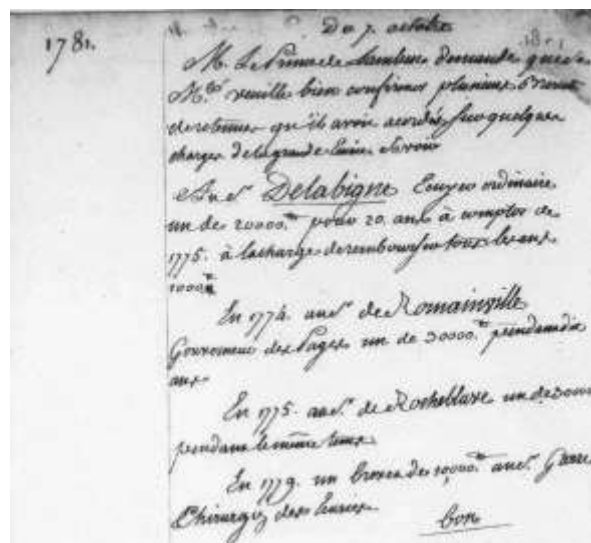 1781.
Du 7. octobre
M. Le Prince de Lambesc demande que sa
M.té veuille bien confirmer plusieurs Brevets
de retenue qu'il avoit acordés sur quelques
charges de la grande Ecurie. Savoir
Au S.r Delabigne Ecuyer ordinaire
un de 20000.tt pour 20. ans à compter de
1775. à la charge de rembourser tous les ans
1000tt
En 1774. au S.r de Romainville
Gouverneur des Pages un de 30000.tt pendant dix
ans
En 1775. au S.r de Rocheblave un de 3000
pendant le même tems
En 1779. un brevet de 10,000.tt au S.r
Chirurgien des Ecuries
bon